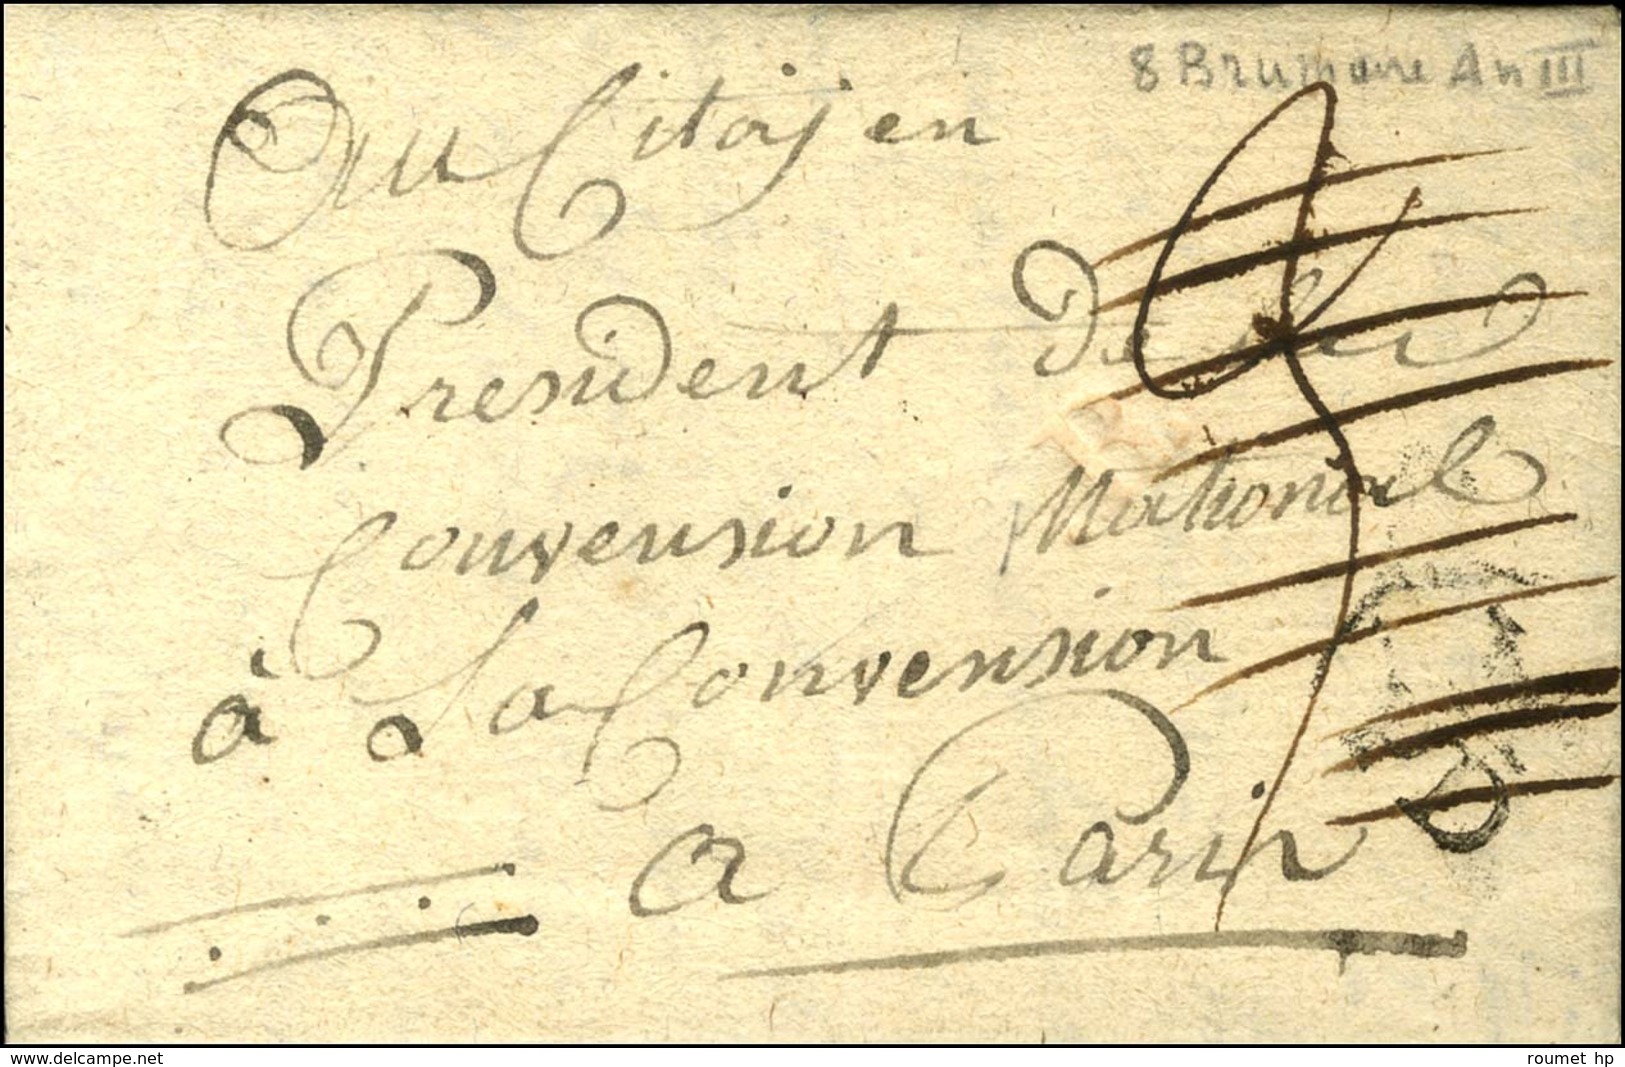 8 Brumaire An III
Au Citoyen
President De la
Convension Nationale
à La Convension
a Paris
P
www.delcampe.net
roumet hp